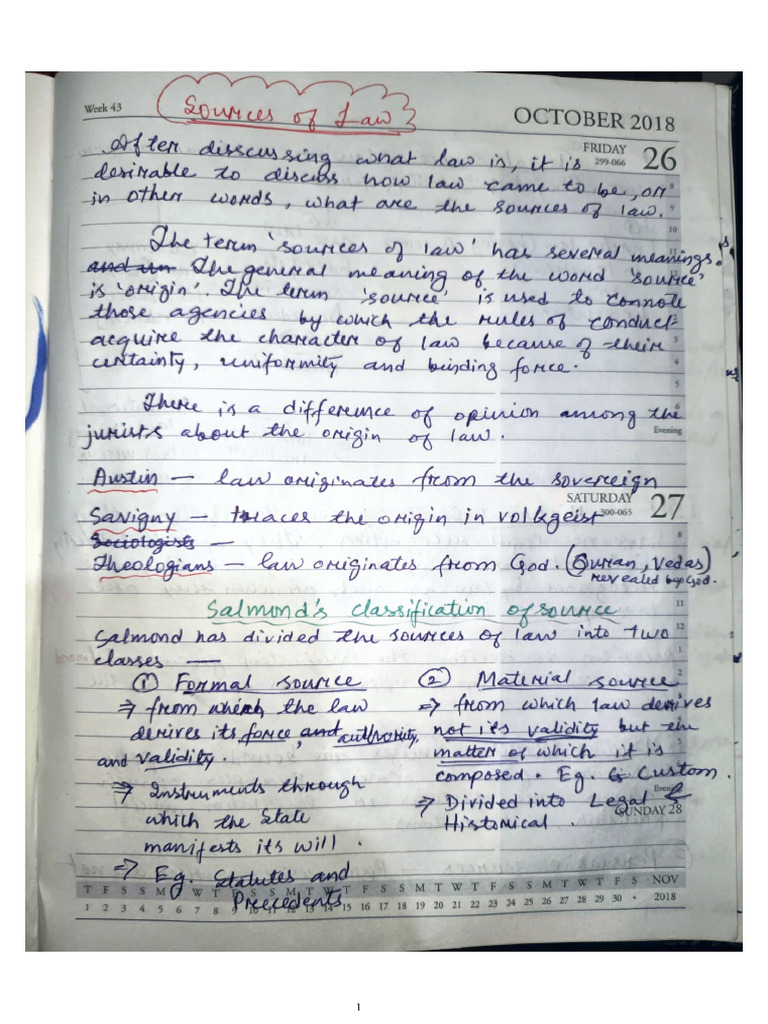 Week 43
Sources of Law
OCTOBER 2018
FRIDAY
299-066
26
After disscussing what law is, it is
desirable to discuss how law came to be, or
in other words, what are the sources of law.
The term 'sources of law' has several meanings.
and un The general meaning of the word 'source'
is 'origin'. The term 'source' is used to connote
those agencies by which the rules of conduct
acquire the character of law because of their
certainty, uniformity and binding force.
There is a difference of opinion among the
jurists about the origin of law.
Evening
Austin — law originates from the sovereign
SATURDAY
300-065
27
Savigny — traces the origin in volkgeist
Sociologists —
Theologians — law originates from God. (Quran, Vedas)
revealed by God.
Salmond's classification of source
Salmond has divided the sources of law into two
classes —
① Formal source
⇒ from which the law
derives its force, and authority,
and validity.
⇒ Instruments through
which the State
manifests its will.
⇒ Eg. Statutes and
Precedents
② Material source
⇒ from which law derives
not its validity but the
matter of which it is
composed. Eg. Custom.
⇒ Divided into Legal &
Historical.
Evening
SUNDAY 28
T F S S M T W T F S S M T W T F S S M T W T F S S M T W T F S NOV
1 2 3 4 5 6 7 8 9 10 11 12 13 14 15 16 17 18 19 20 21 22 23 24 25 26 27 28 29 30 • 2018
1